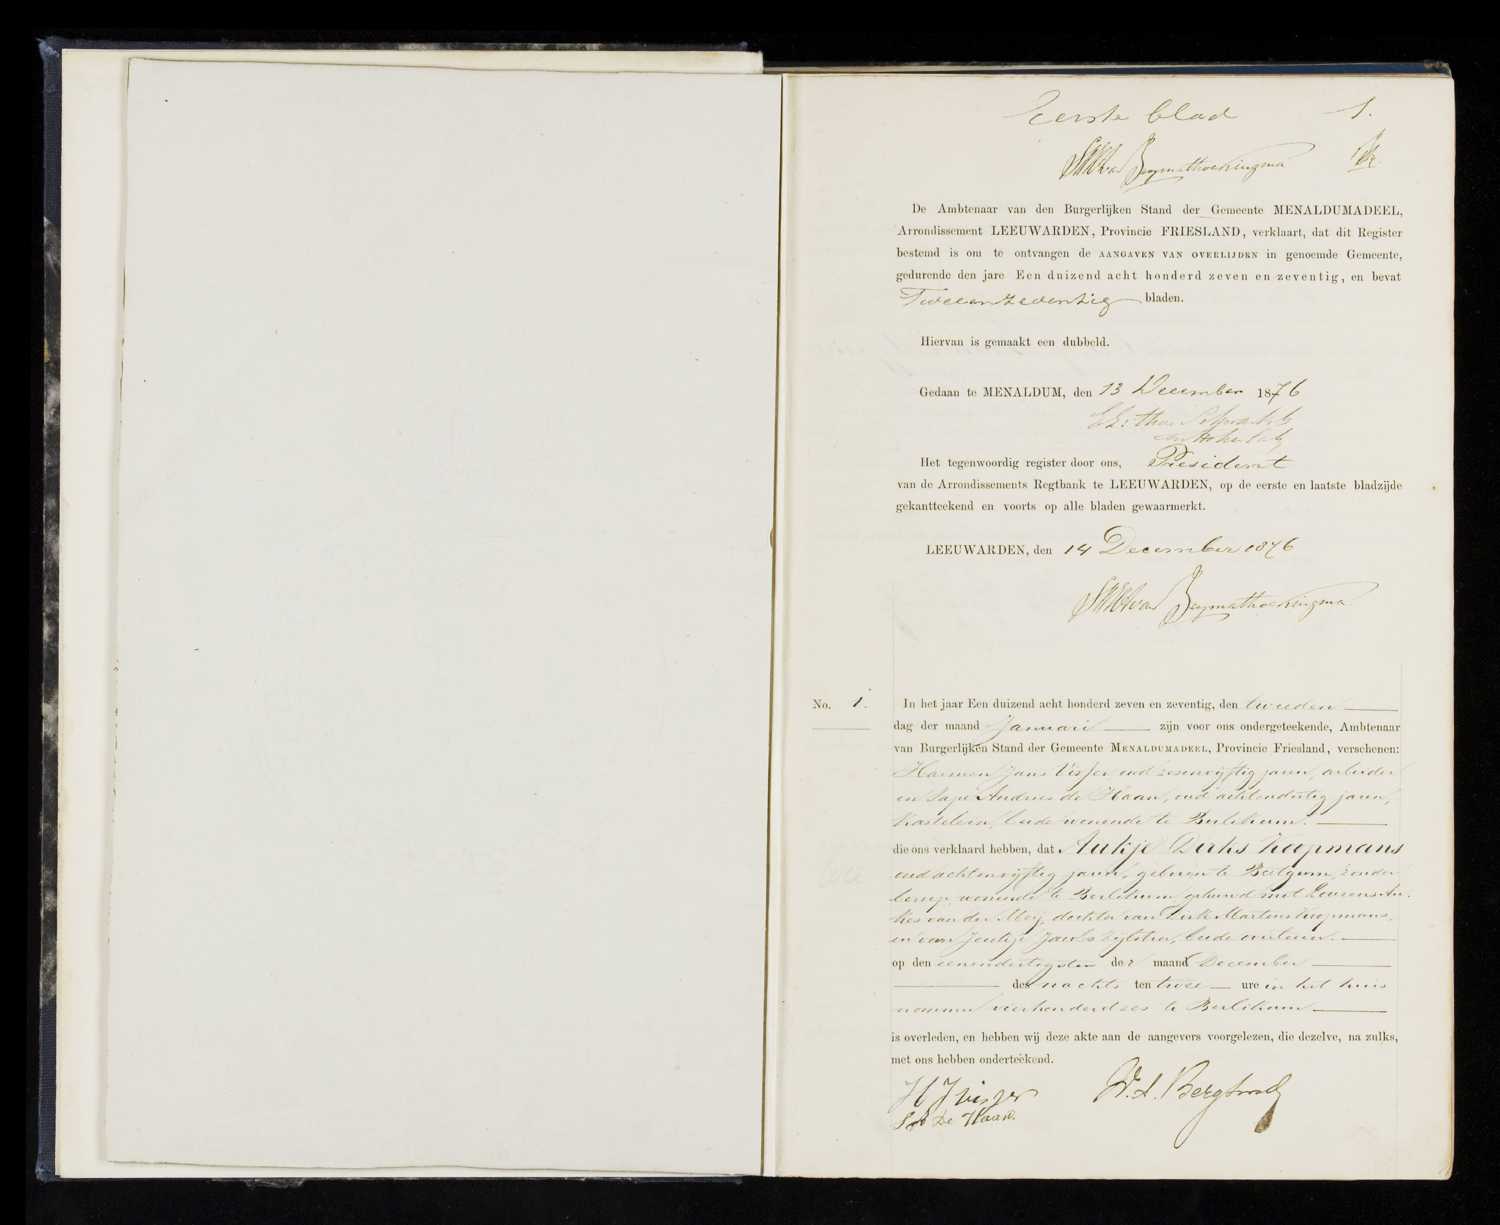 Eerste blad 1.
De Ambtenaar van den Burgerlijken Stand der Gemeente MENALDUMADEEL,
Arrondissement LEEUWARDEN, Provincie FRIESLAND, verklaart, dat dit Register
bestemd is om te ontvangen de AANGAVEN VAN OVERLIJDEN in genoemde Gemeente,
gedurende den jare Een duizend acht honderd zeven en zeventig, en bevat
Tweeenzeventig bladen.
Hiervan is gemaakt een dubbeld.
Gedaan te MENALDUM, den 13 December 1876
Het tegenwoordig register door ons, President
van de Arrondissements Regtbank te LEEUWARDEN, op de eerste en laatste bladzijde
gekantteekend en voorts op alle bladen gewaarmerkt.
LEEUWARDEN, den 14 December 1876
No. 1. In het jaar Een duizend acht honderd zeven en zeventig, den tweeden
dag der maand Januari zijn voor ons ondergeteekende, Ambtenaar
van Burgerlijken Stand der Gemeente MENALDUMADEEL, Provincie Friesland, verschenen:
Harmen Jans Visser, oud zesenvijftig jaren, arbeider
en Sape Andries de Haan, oud achtendertig jaren,
Kastelein, beide wonende te Berlikum.
die ons verklaard hebben, dat Aukje Dirks Koopmans
oud achtenvijftig jaren, geboren te Bergum, zonder
beroep, wonende te Berlikum, gehuwd met Lourens An-
kes van der Meij, dochter van Dirk Martens Koopmans,
en van Jeltje Jacobs Zijlstra, beide overleden.
op den eenendertigsten der maand December
des nachts ten twee ure in het huis
nommer vierhonderdzes te Berlikum
is overleden, en hebben wij deze akte aan de aangevers voorgelezen, die dezelve, na zulks,
met ons hebben onderteekend.
H J Visser
S A De Haan.